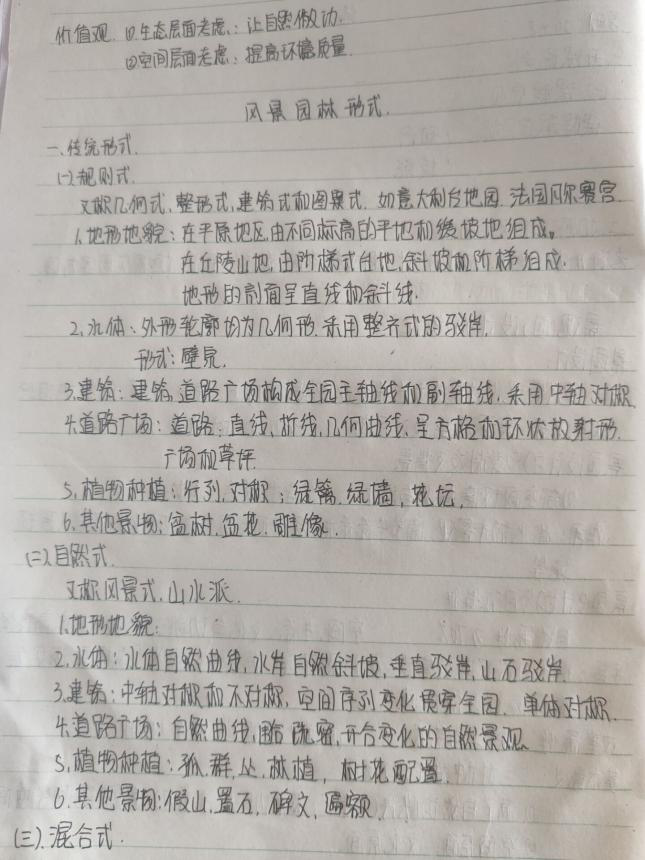 价值观. ①.生态层面考虑:让自然做功.
②空间层面考虑:提高环境质量.
风景园林形式.
一、传统形式.
(一)规则式.
又称几何式、整形式、建筑式和图案式. 如意大利台地园. 法国凡尔赛宫.
1.地形地貌:在平原地区,由不同标高的平地和缓坡地组成。
在丘陵山地,由阶梯式台地,斜坡和阶梯组成.
地形的剖面呈直线和斜线.
2.水体:外形轮廓均为几何形.采用整齐式的驳岸.
形式:壁泉.
3.建筑:建筑,道路广场构成全园主轴线和副轴线. 采用中轴对称.
4.道路广场:道路:直线,折线,几何曲线,呈方格和环状放射形.
广场和草坪.
5.植物种植:行列.对称;绿篱.绿墙,花坛,
6.其他景物:盆树.盆花.雕像.
(二).自然式.
又称风景式、山水派.
1.地形地貌:
2.水体:水体自然曲线,水岸自然斜坡,垂直驳岸,山石驳岸.
3.建筑:中轴对称和不对称,空间序列变化贯穿全园. 单体对称.
4.道路广场:自然曲线, 疏密,开合变化的自然景观.
5.植物种植:孤.群.丛.林植, 树花配置.
6.其他景物:假山,置石,碑文,匾额.
(三).混合式.